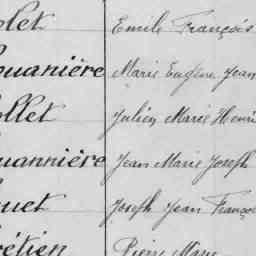 olet Emile François
ouanière Marie Eugène Jean
ollet Julien Marie Henri
uannière Jean Marie Joseph
ouet Joseph Jean Franço
rétien Pierre Marie